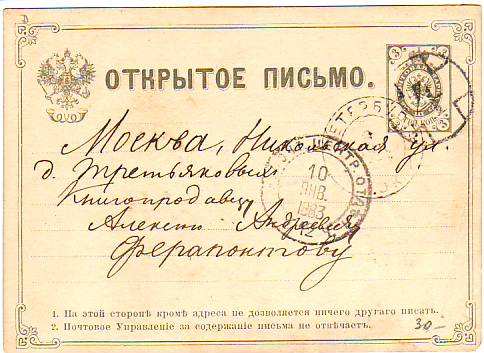 3
3
ОТКРЫТОЕ ПИСЬМО.
Москва, Никольская ул.
д. Третьяковых
Книгопродавцу
Алексею Андреевичу
Ферапонтову
10
ЯНВ.
1883
1. На этой сторонѣ кромѣ адреса не дозволяется ничего другаго писать.
2. Почтовое Управленіе за содержаніе письма не отвѣчаетъ.
30-